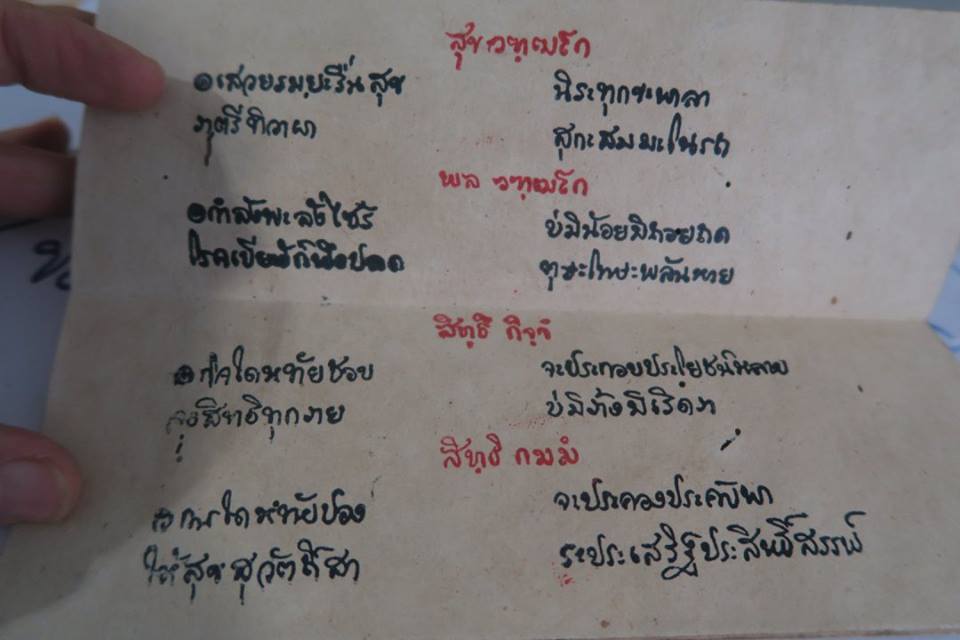 สุข วฑฺฒโก
๏ เสวยรมยะรื่นสุข นิระทุกขะพาลา
ทิวาผา สุกะสมมะโนรถ
พล วฑฺฒโก
๏ กำลังพะลังไชร้ บ่มิน้อยมิถอยถด
โรคเบียฬก็ ปลด ทุษะโทษะพลันหาย
สิทฺธิ กิจฺจํ
๏ กิจใดหทัยชอบ จะประกอบประโยชน์หลาย
สิทธิทุกภาย บ่มิพังมิเริดภา
สิทฺธิ กมฺมํ
๏ การใดหทัยปอง จะประคองประคับพา
ให้สุขสุวัตถิ์สา ระประเสริฐประสิทธิ์สรรพ์